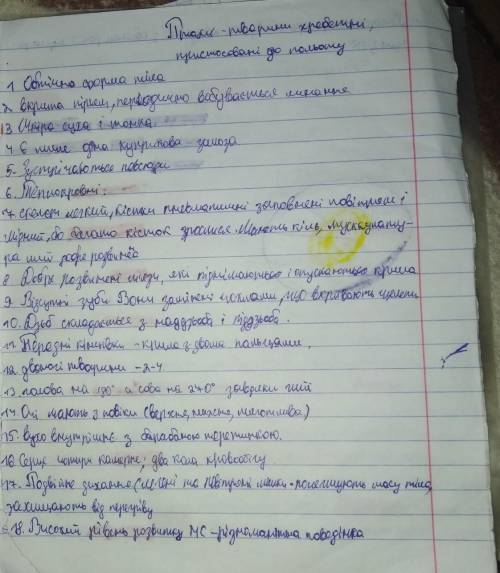 Птахи - тварини хребетні,
пристосовані до польоту
1. Обтічна форма тіла
2. вкрита пірям, періодично відбувається линяння
3. Шкіра суха і тонка
4. Є лише одна куприкова залоза
5. Зустрічаються повсюди
6. Теплокровні.
7. скелет легкий, кістки пневматичні заповнені повітрям і
міцний, бо багато кісток зрослися. Мають кіль, мускулату-
ра шиї добре розвинена
8. Добре розвинені мязи, які піднімають і опускають крила
9. Відсутні зуби Вони замінені чохлами, що вкривають щелепи
10. Дзьоб складається з наддзьоба і піддзьоба.
11. Передні кінцівки - крила з двома пальцями.
12. двоногі тварини - 2-4
13. голова на 180° а сова на 270° завдяки шиї
14. Очі мають 3 повіки (верхня, нижня, миготлива)
15. вухо внутрішнє з барабаною перетинкою.
16. Серце чотири камерне; два кола кровообігу
17. Подвійне дихання (легені та повітряні мішки - полегшують масу тіла,
захищають від перегріву
18. Високий рівень розвитку НС - різноманітна поведінка